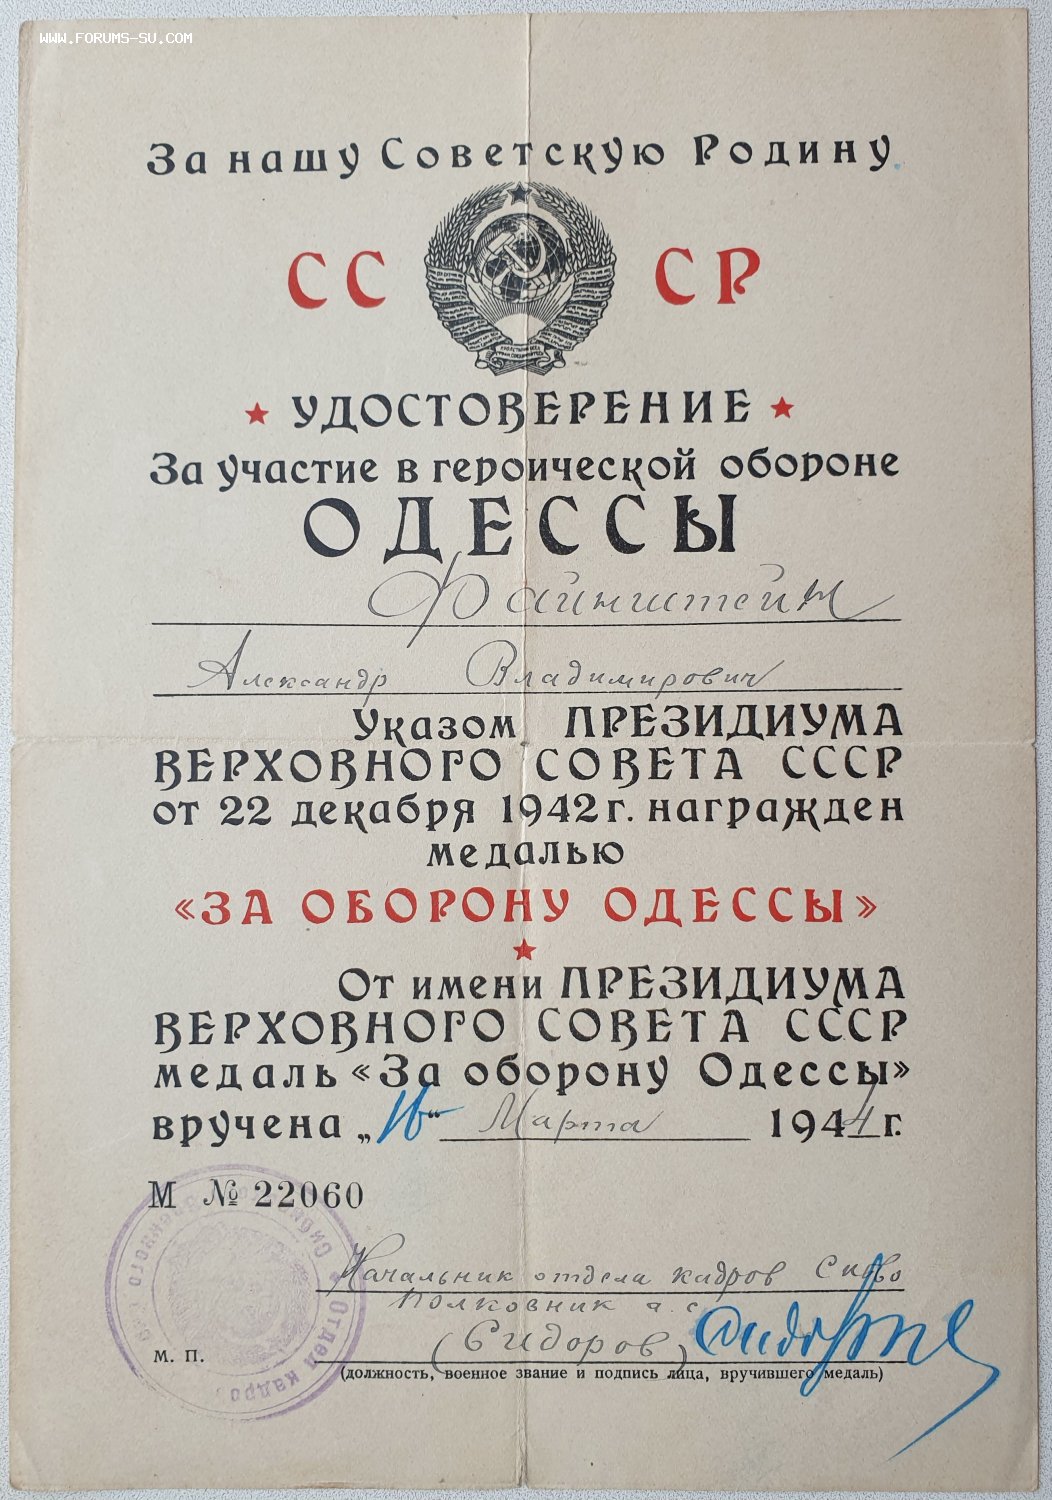 WWW.FORUMS-SU.COM
За нашу Советскую Родину
СССР
УДОСТОВЕРЕНИЕ
За участие в героической обороне
ОДЕССЫ
Файнштейн
Александр Владимирович
Указом ПРЕЗИДИУМА
ВЕРХОВНОГО СОВЕТА СССР
от 22 декабря 1942 г. награжден
медалью
«ЗА ОБОРОНУ ОДЕССЫ»
От имени ПРЕЗИДИУМА
ВЕРХОВНОГО СОВЕТА СССР
медаль «За оборону Одессы»
вручена „16“ Марта 1944 г.
М № 22060
Начальник отдела кадров СибВО
Полковник а.с.
(Сидоров)
М. П.
(должность, военное звание и подпись лица, вручившего медаль)
Отдел кадро
Сибирского военного